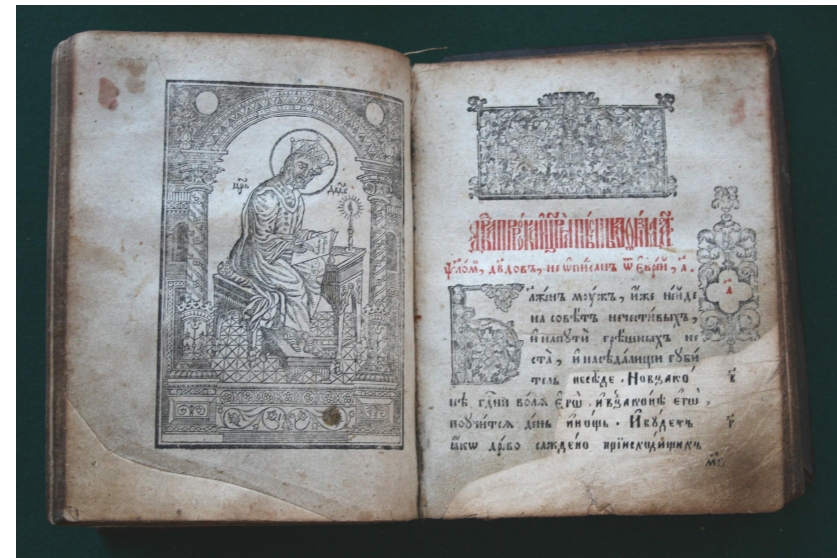 цр҃ь дв҃дъ
ѱало́м, дв҃довъ, не ѡ҆пи́санъ ѿ є҆врє́й, а҃.
а҃
Блаже́нъ моу́жъ, и҆́же не и҆́де
на совѣ́тъ нечести́выхъ,
и҆ на пути̑ грѣ́шныхъ не
ста̀, и҆ на сѣда́лищи губи́
тель не сѣ́де. Но в зако́
в҃
нѣ гд҇ни во́лѧ є҆гѡ̀, и҆ в зако́нѣ є҆гѡ̀,
поучи́тсѧ де́нь и҆ но́щь. И҆ бу́детъ
г҃
ꙗ҆́кѡ др́во сажде́но при и҆схо́дищихъ